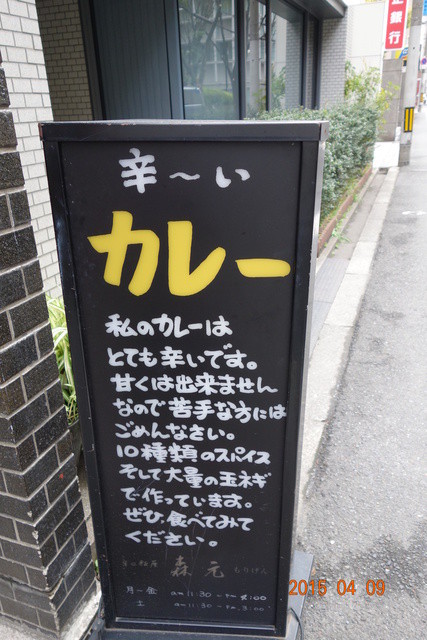 辛～い
カレー
私のカレーは
とても辛いです。
甘くは出来ません
なので苦手な方には
ごめんなさい。
10種類のスパイス
そして大量の玉ネギ
で作っています。
ぜひ、食べてみて
ください。
森元
月～金 am 11:30 -
土 am 11:30 - P.m. 3:00
銀行
2015 04 09